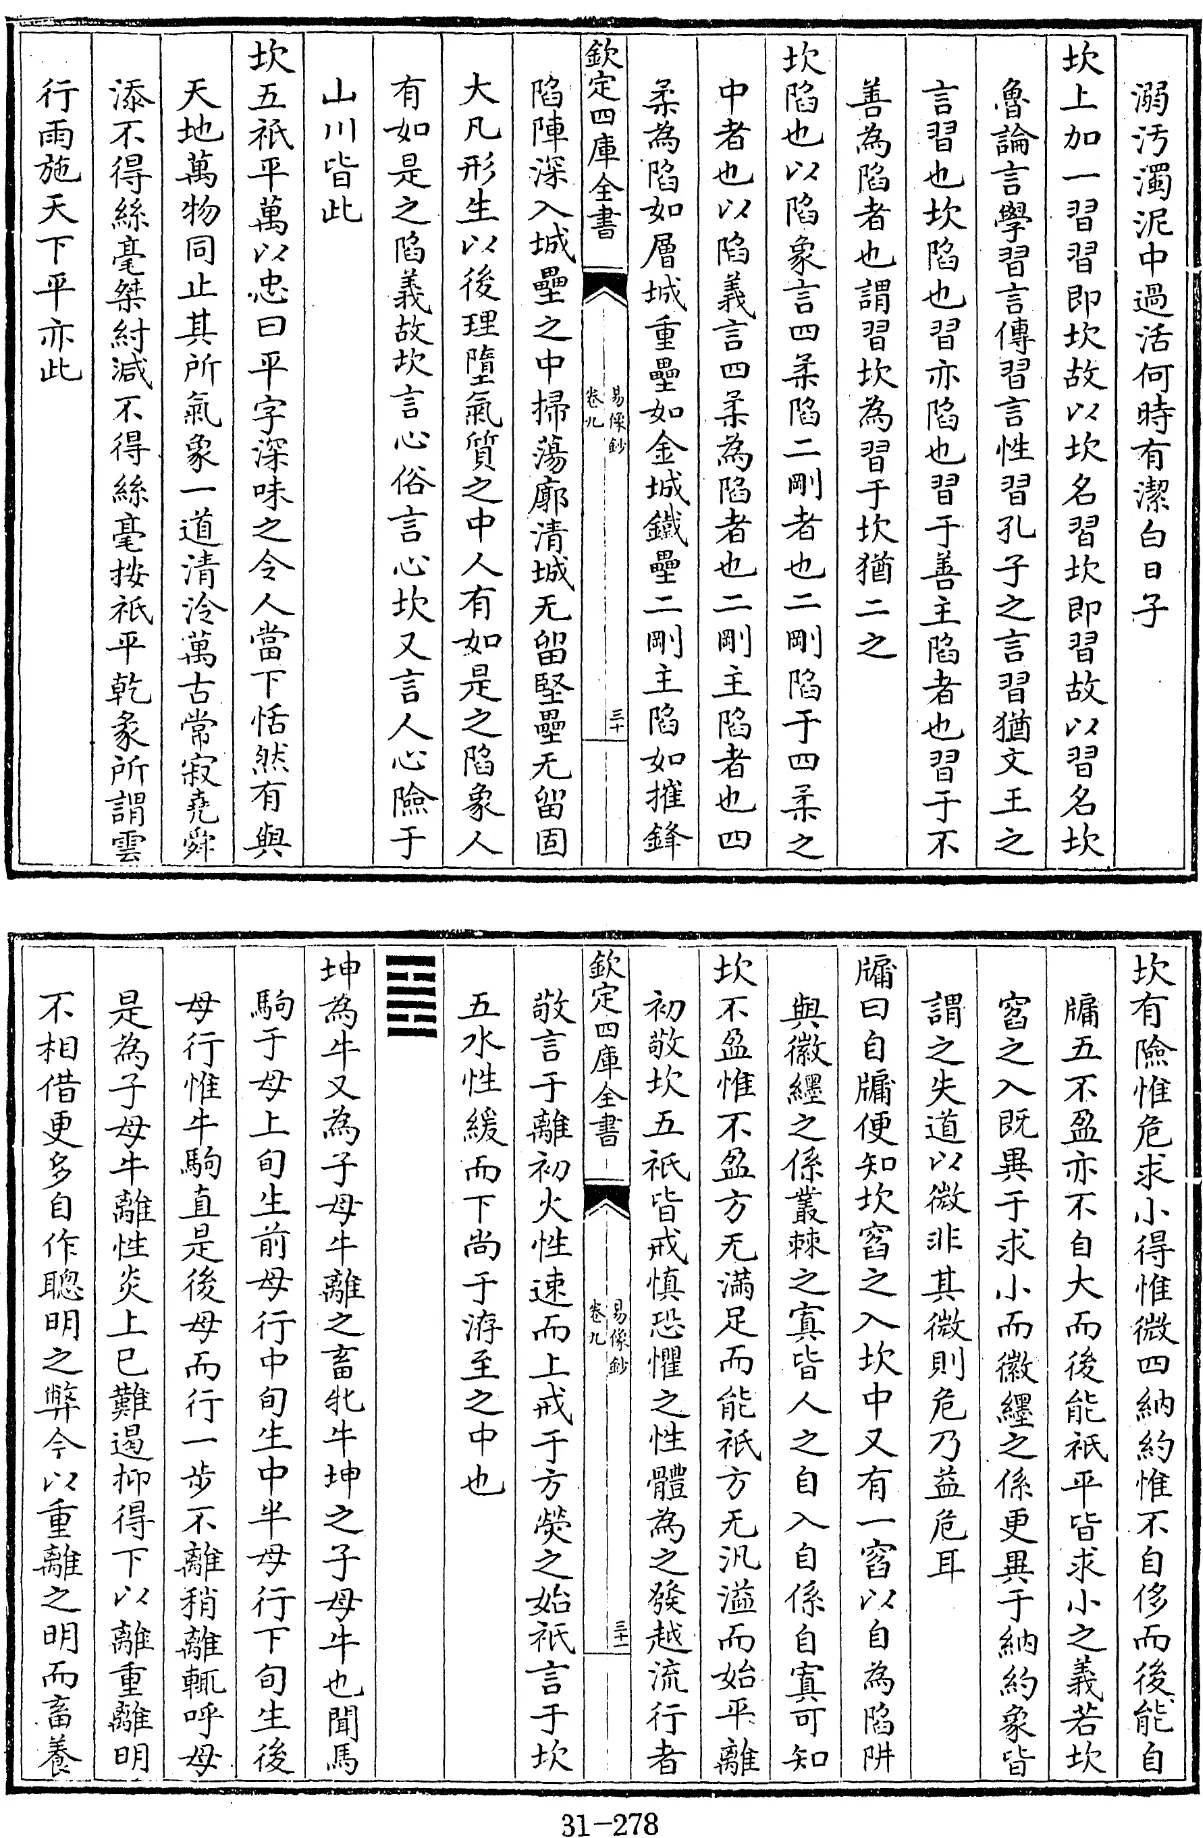 溺汚濁泥中過活何時有潔白日子
坎上加一習習即坎故以坎名習坎即習故以習名坎
魯論言學習言傳習言性習孔子之言習猶文王之
言習也坎陷也習亦陷也習于善主陷者也習于不
善為陷者也謂習坎為習于坎猶二之
坎陷也以陷象言四柔陷二剛者也二剛陷于四柔之
中者也以陷義言四柔為陷者也二剛主陷者也四
柔為陷如層城重壘如金城鐵壘二剛主陷如摧鋒
欽定四庫全書
易像鈔
卷九
三十
陷陣深入城壘之中掃蕩廓清城无留堅壘无留固
大凡形生以後理墮氣質之中人有如是之陷象人
有如是之陷義故坎言心俗言心坎又言人心險于
山川皆此
坎五祇平萬以忠曰平字深味之令人當下恬然有與
天地萬物同止其所氣象一道清泠萬古常寂堯舜
添不得絲毫桀紂減不得絲毫按祇平乾彖所謂雲
行雨施天下平亦此
坎有險惟危求小得惟微四納約惟不自侈而後能自
牖五不盈亦不自大而後能祇平皆求小之義若坎
窞之入既異于求小而徽纆之係更異于納約象皆
謂之失道以微非其微則危乃益危耳
牖曰自牖便知坎窞之入坎中又有一窞以自為陷阱
與徽纆之係叢棘之寘皆人之自入自係自寘可知
坎不盈惟不盈方无滿足而能祇方无汎溢而始平離
初敬坎五祇皆戒慎恐懼之性體為之發越流行者
欽定四庫全書
易像鈔
卷九
三十一
敬言于離初火性速而上戒于方熒之始祇言于坎
五水性緩而下尚于洊至之中也
坤為牛又為子母牛離之畜牝牛坤之子母牛也聞馬
駒于母上旬生前母行中旬生中半母行下旬生後
母行惟牛駒直是後母而行一步不離稍離輒呼母
是為子母牛離性炎上已難遏抑得下以離重離明
不相借更多自作聰明之弊今以重離之明而畜養
31-278